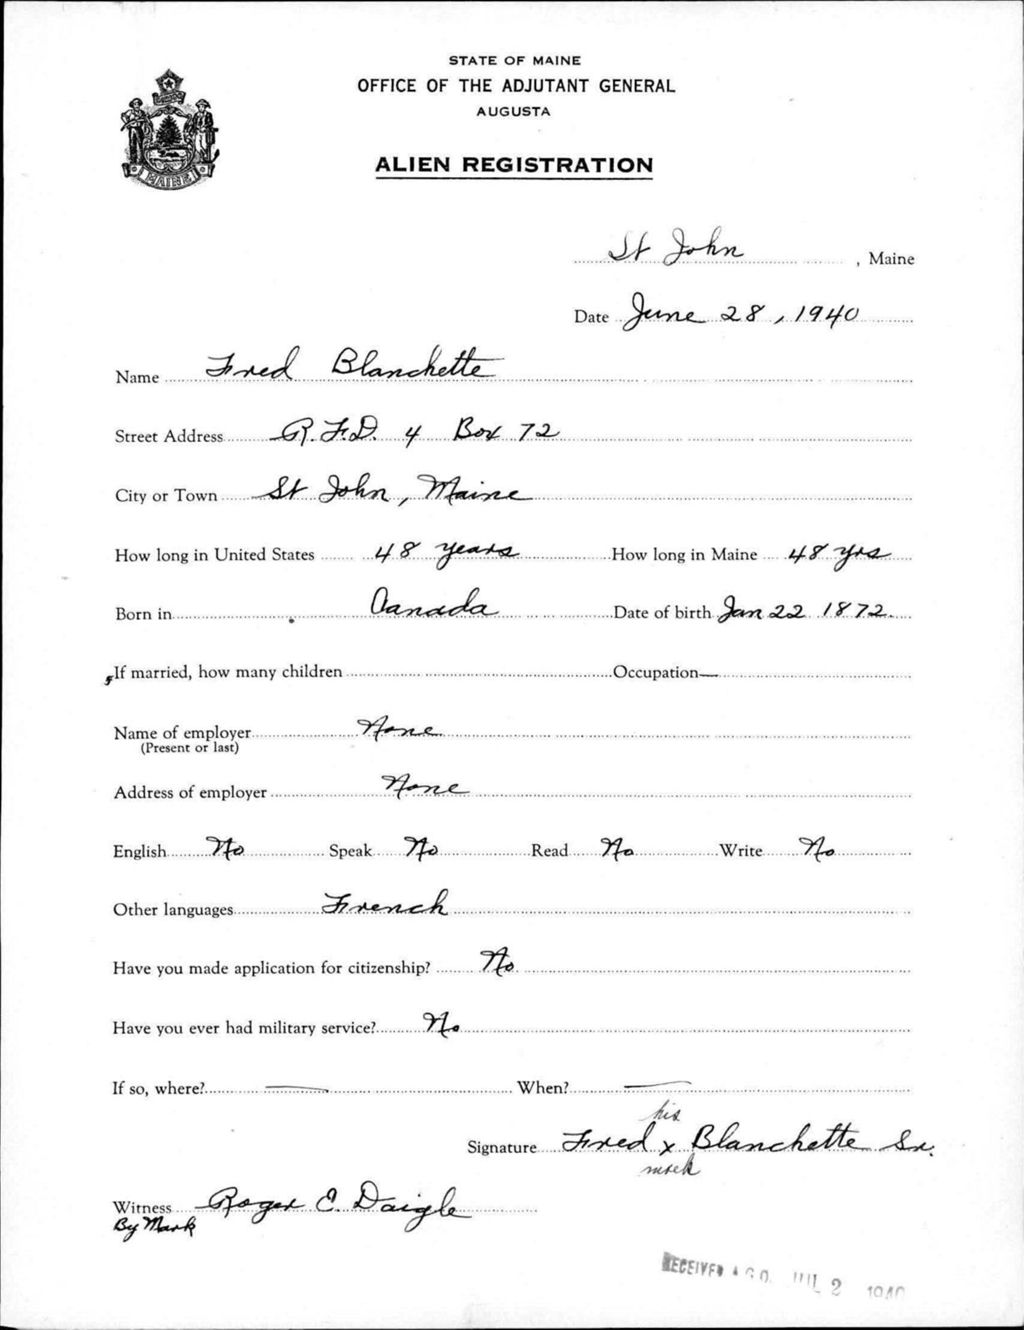 STATE OF MAINE
OFFICE OF THE ADJUTANT GENERAL
AUGUSTA
MAINE
ALIEN REGISTRATION
St John, Maine
Date June 28, 1940
Name Fred Blanchette
Street Address R.F.D. 4 Box 72
City or Town St John, Maine
How long in United States 48 years How long in Maine 48 yrs
Born in Canada Date of birth Jan 22 1872
If married, how many children Occupation—
Name of employer None
(Present or last)
Address of employer None
English No Speak No Read No Write No
Other languages French
Have you made application for citizenship? No
Have you ever had military service? No
If so, where? — When? —
his
Signature Fred x Blanchette Sr.
mark
Witness Roger E. Daigle
By Mark
RECEIVED A.G.O. JUL 2 1940